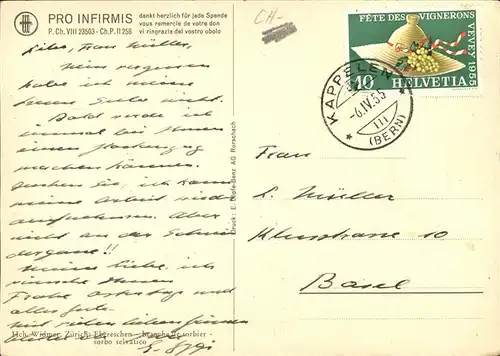 PRO INFIRMIS
P. Ch. VIII 23503 - Ch. P. II 258
dankt herzlich für jede Spende
vous remercie de votre don
vi ringrazia del vostro obolo
Liebe, Frau Müller,
Nein vergessen
habe ich meine
Gurs nicht.
Bald werde ich
einmal bei Ihnen
einen
machen können.
Denken Sie, ich kann
meine Arbeit wieder
aufnehmen. Aber
nicht an der
!!
Meine liebe, ich
wünsche Ihnen
Frohe Ostertage und
alles Gute.
Mit vielen lieben Grüssen
Hch. Widmer, Zürich: Ebereschen - branche de sorbier -
sorbo selvatico
Druck: E. Löpfe-Benz AG. Rorschach
CH-
FÊTE DES VIGNERONS
VEVEY 1955
10 HELVETIA
KAPPELEN
-6.IV.55
III
(BERN)
Frau
L. Müller
10
Basel